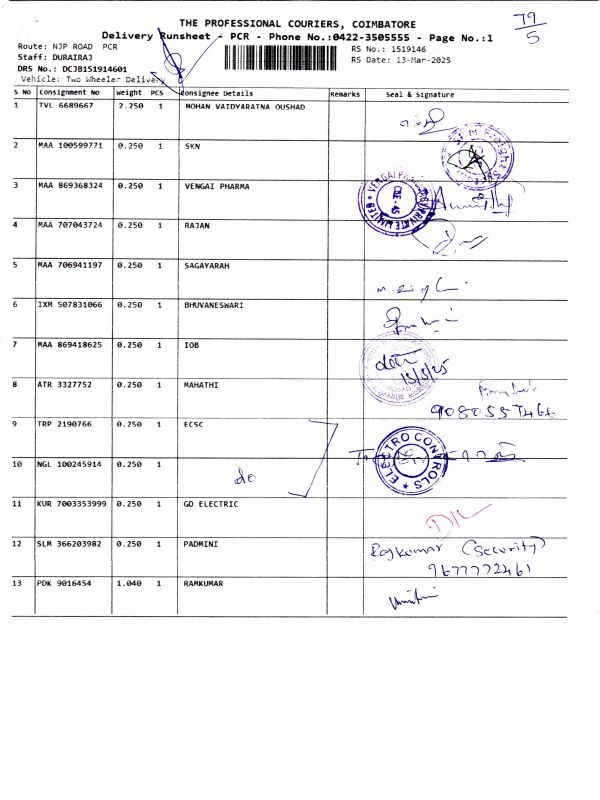 THE PROFESSIONAL COURIERS, COIMBATORE
79/5
Delivery Runsheet - PCR - Phone No.:0422-3505555 - Page No.:1
Route: NJP ROAD PCR
RS No.: 1519146
Staff: DURAIRAJ
RS Date: 13-Mar-2025
DRS No.: DCJB151914601
Vehicle: Two Wheeler Delivery
S NO Consignment No Weight PCS Consignee Details Remarks Seal & Signature
1 TVL 6689667 2.250 1 MOHAN VAIDYARATNA OUSHAD
2 MAA 100599771 0.250 1 SKN
3 MAA 869368324 0.250 1 VENGAI PHARMA
4 MAA 707043724 0.250 1 RAJAN
5 MAA 706941197 0.250 1 SAGAYARAH
6 IXM 507831066 0.250 1 BHUVANESWARI
7 MAA 869418625 0.250 1 IOB
13/3/25
8 ATR 3327752 0.250 1 MAHATHI
9 TRP 2190766 0.250 1 ECSC
ELECTRO CONTROLS
10 NGL 100245914 0.250 1 do
11 KUR 7003353999 0.250 1 GD ELECTRIC
12 SLM 366203982 0.250 1 PADMINI Rajkumar (Security)
9677772461
13 PDK 9016454 1.040 1 RAMKUMAR